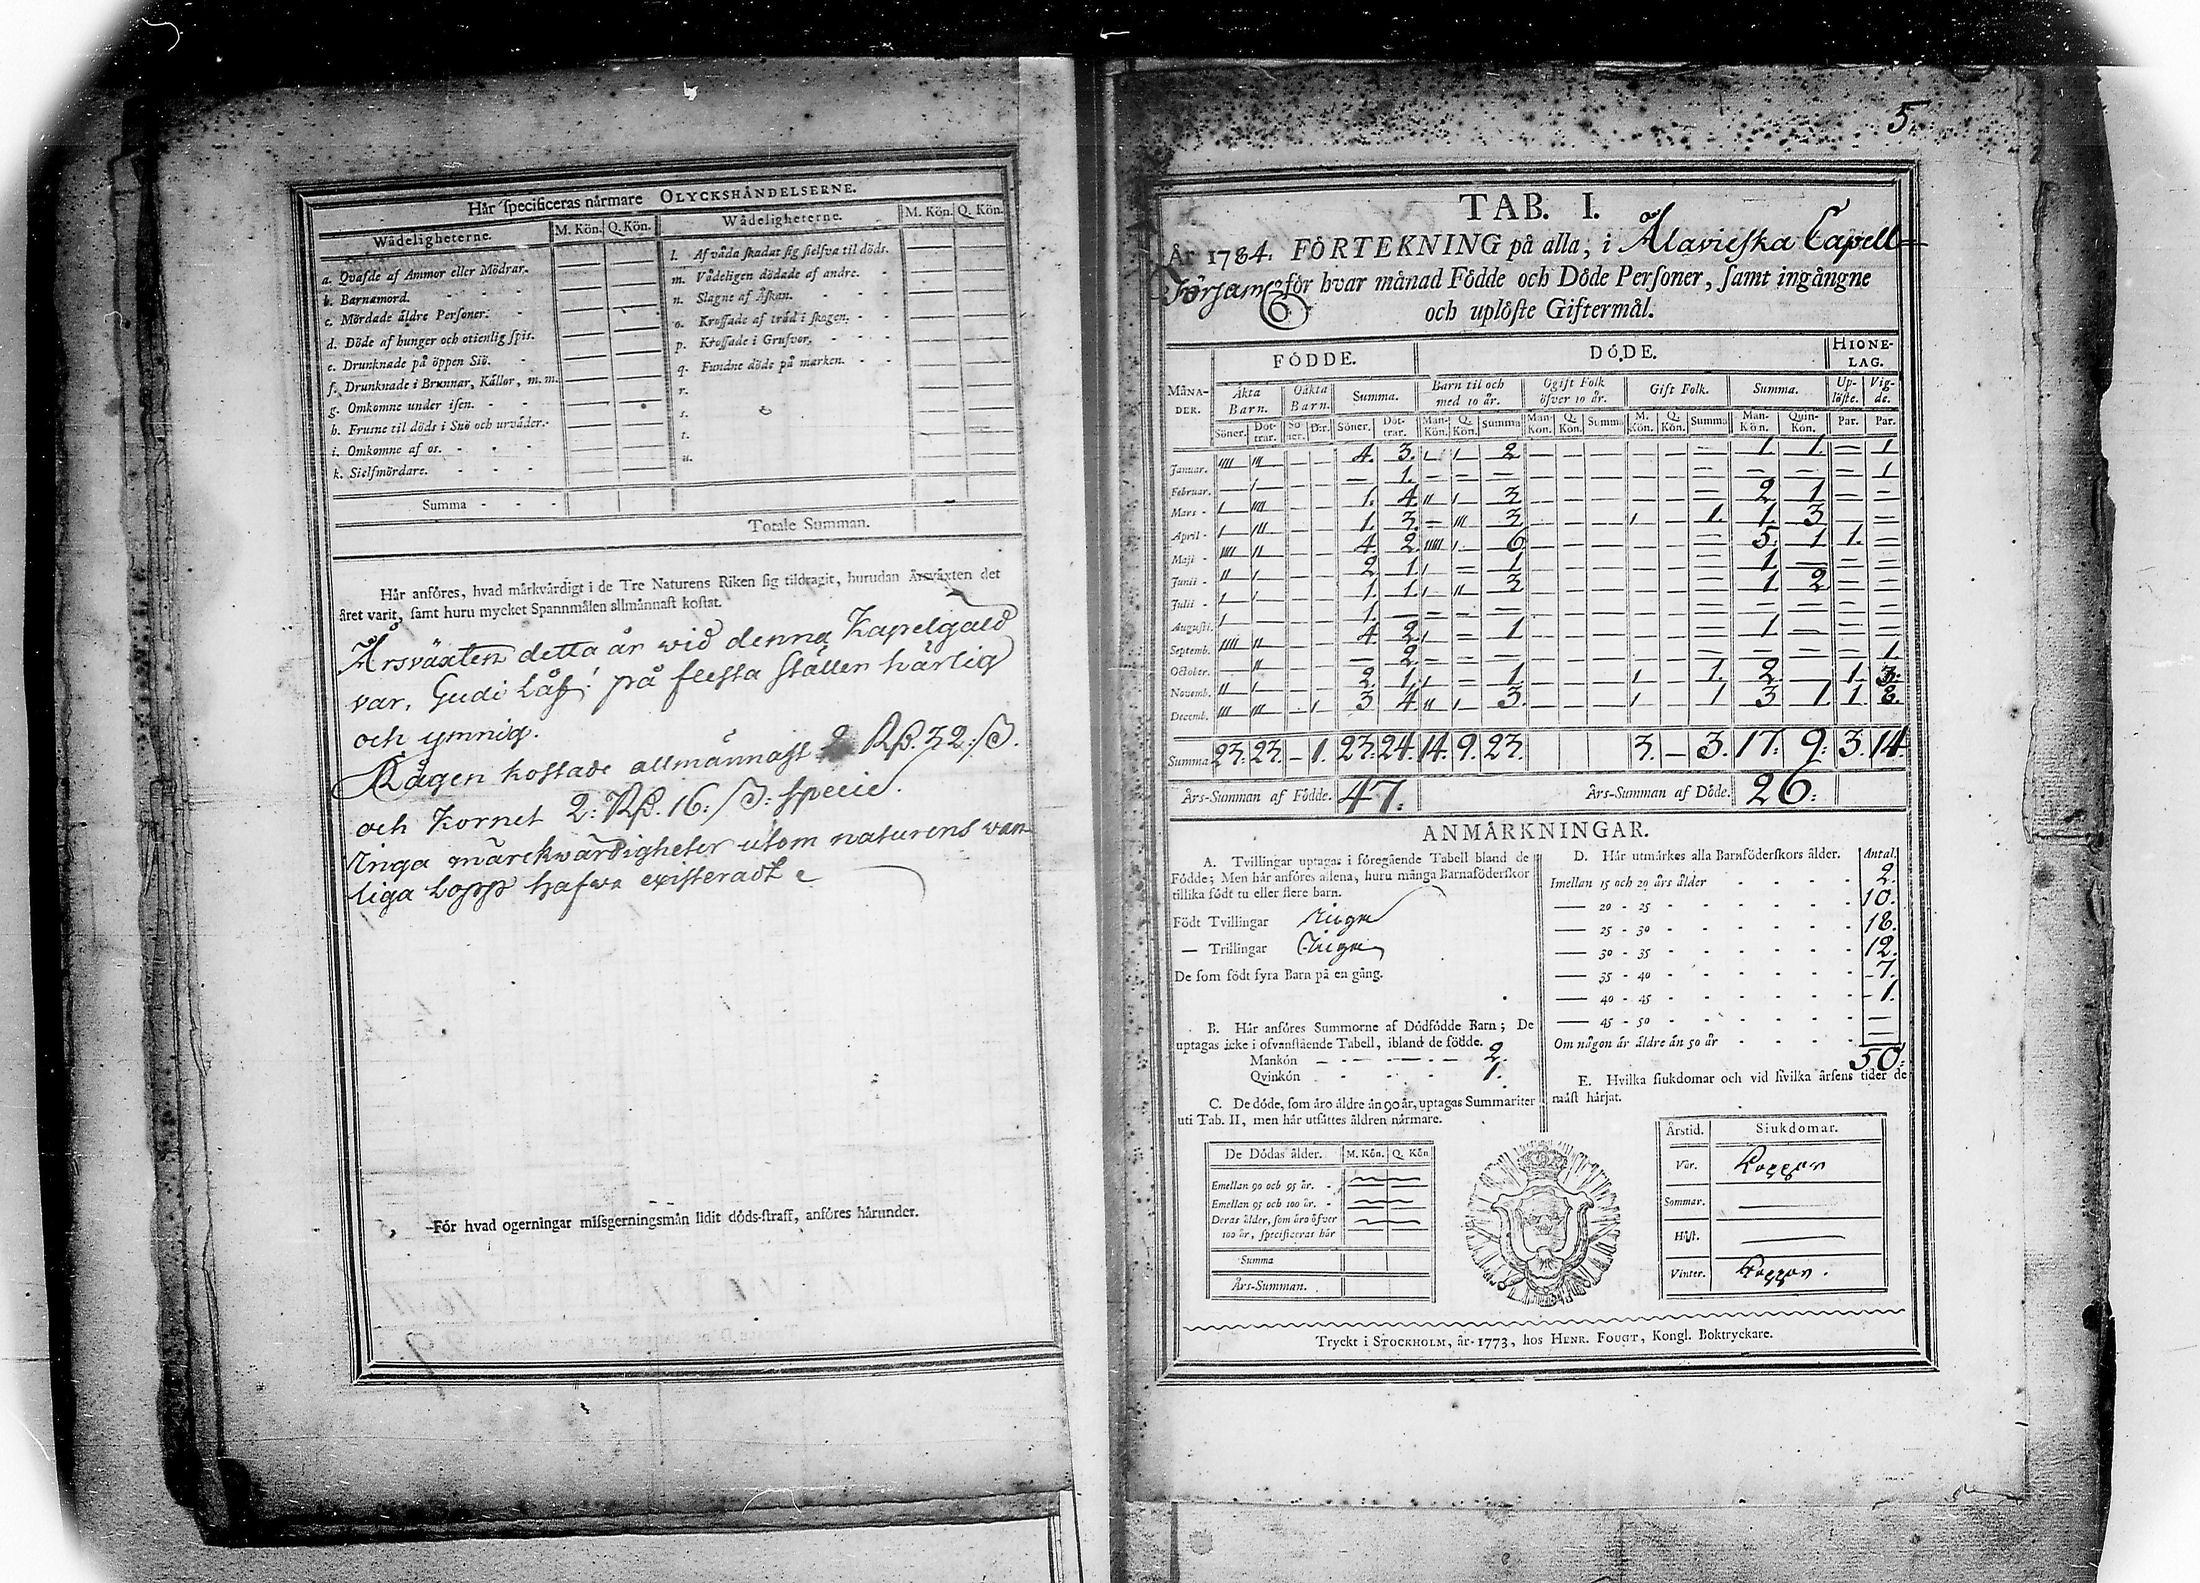 Hår specificeras nårmare OLYCKSHÅNDELSERNE.
Wådeligheterne. M. Kön. Q. Kön. Wådeligheterne. M. Kön. Q. Kön.
a. Qvafde af Ammor eller Mödrar.
b. Barnamord.
c. Mördade åldre Personer.
d. Döde af hunger och otienlig spis.
e. Drunknade på öppen Siö.
f. Drunknade i Brunnar, Kållor, m. m.
g. Omkomne under isen.
h. Frusne til döds i Snö och urvåder.
i. Omkomne af os.
k. Sielfmördare.
l. Af våda skadat sig sielfva til döds.
m. Vådeligen dödade af andre.
n. Slagne af Åskan.
o. Krossade af tråd i skogen.
p. Krossade i Grufvor.
q. Fundne döde på marken.
r.
s.
t.
u.
Summa
Totale Summan.
Hår anföres, hvad mårkvårdigt i de Tre Naturens Riken sig tildragit, hurudan Årsvåxten det
året varit, samt huru mycket Spannmålen allmånnast kostat.
Årsväxten detta år wid denna Kapelgäld
var, Gudi Låf! på flesta ställen härlig
och ymnig.
Rågen kostade allmännast 2 Rß. 32: ß.
och Kornet 2: Rß. 16: ß: Specie.
Inga märckwärdigheter utom naturens wan
liga Lopp hafwa existeradt
För hvad ogerningar missgerningsmån lidit döds-straff, anföres hårunder.
5.
TAB. I.
År 1784. FÖRTEKNING på alla, i Alavieska Capell=
Församl: för hvar månad Födde och Döde Personer, samt ingångne
och uplöste Giftermål.
MÅNA-DER. FÖDDE. DÖDE. HIONE-LAG.
Åkta Barn. Oåkta Barn. Summa. Barn til och med 10 år. Ogift Folk öfver 10 år. Gift Folk. Summa. Up-löste. Vig-de.
Söner. Döt-trar. Sö-ner. Dör. Söner. Döt-trar. Man-Kön. Q. Kön. Summa Man-Kön. Q. Kön. Summa M. Kön. Q. Kön. Summa Man-Kön. Quin-Kön. Par. Par.
Januar. |||| ||| — — 4. 3. | | 2 — — — — — — 1. 1. — 1
Februar. — | — — — 1. — — — — — — — — — — — — 1
Mars | |||| — — 1. 4. || | 3 — — — — — — 2 1 — —
April | ||| — — 1. 3. — ||| 3 — — — | — 1. 1. 3 — —
Maji |||| || — — 4. 2. ||||| | 6 — — — — — — 5. 1 1. —
Junii || | — — 2. 1. | — 1 — — — — — — 1 — — —
Julii | | — — 1. 1. | || 3 — — — — — — 1 2 — —
Augusti. | — — — 1. — — — — — — — — — — — — — —
Septemb. |||| || — — 4. 2. | — 1 — — — — — — 1. — — —
October. — || — — — 2. — — — — — — — — — — — — 1
Novemb. || | — — 2. 1. | — 1. — — — | — 1. 2 — 1. 3.
Decemb. ||| |||| — | 3 4. || | 3. — — — | — 1 3 1. 1 8.
Summa 23: 23. — 1. 23: 24. 14. 9. 23. 3. — 3. 17: 9: 3. 14.
Års-Summan af Födde. 47: Års-Summan af Döde. 26:
ANMÅRKNINGAR.
A. Tvillingar uptagas i föregående Tabell bland de
Födde; Men hår anföres allena, huru många Barnaföderskor
tillika födt tu eller flere barn.
Födt Tvillingar Inga
— Trillingar Inga
De som födt fyra Barn på en gång.
B. Hår anföres Summorne af Dödfödde Barn; De
uptagas icke i ofvanstående Tabell, ibland de födde.
Mankön 2.
Qvinkön 1.
C. De döde, som åro åldre ån 90 år, uptagas Summariter
uti Tab. II, men hår utsåttes åldren nårmare.
De Dödas ålder. M. Kön. Q. Kön
Emellan 90 och 95 år.
Emellan 95 och 100 år.
Deras ålder, som åro öfver
100 år, specificeras hår
Summa
Års-Summan.
D. Hår utmårkes alla Barnföderskors ålder. Antal.
Imellan 15 och 20 års ålder 2.
— 20 - 25 10.
— 25 - 30 18.
— 30 - 35 12.
— 35 - 40 7.
— 40 - 45 1.
— 45 - 50 —
Om någon år åldre ån 50 år —
50:
E. Hvilka siukdomar och vid hvilka årsens tider de
måst hårjat.
Årstid. Siukdomar.
Vår. Koppor
Sommar. —
Höst. —
Vinter. Koppor.
Tryckt i STOCKHOLM, år 1773, hos HENR. FOUGT, Kongl. Boktryckare.